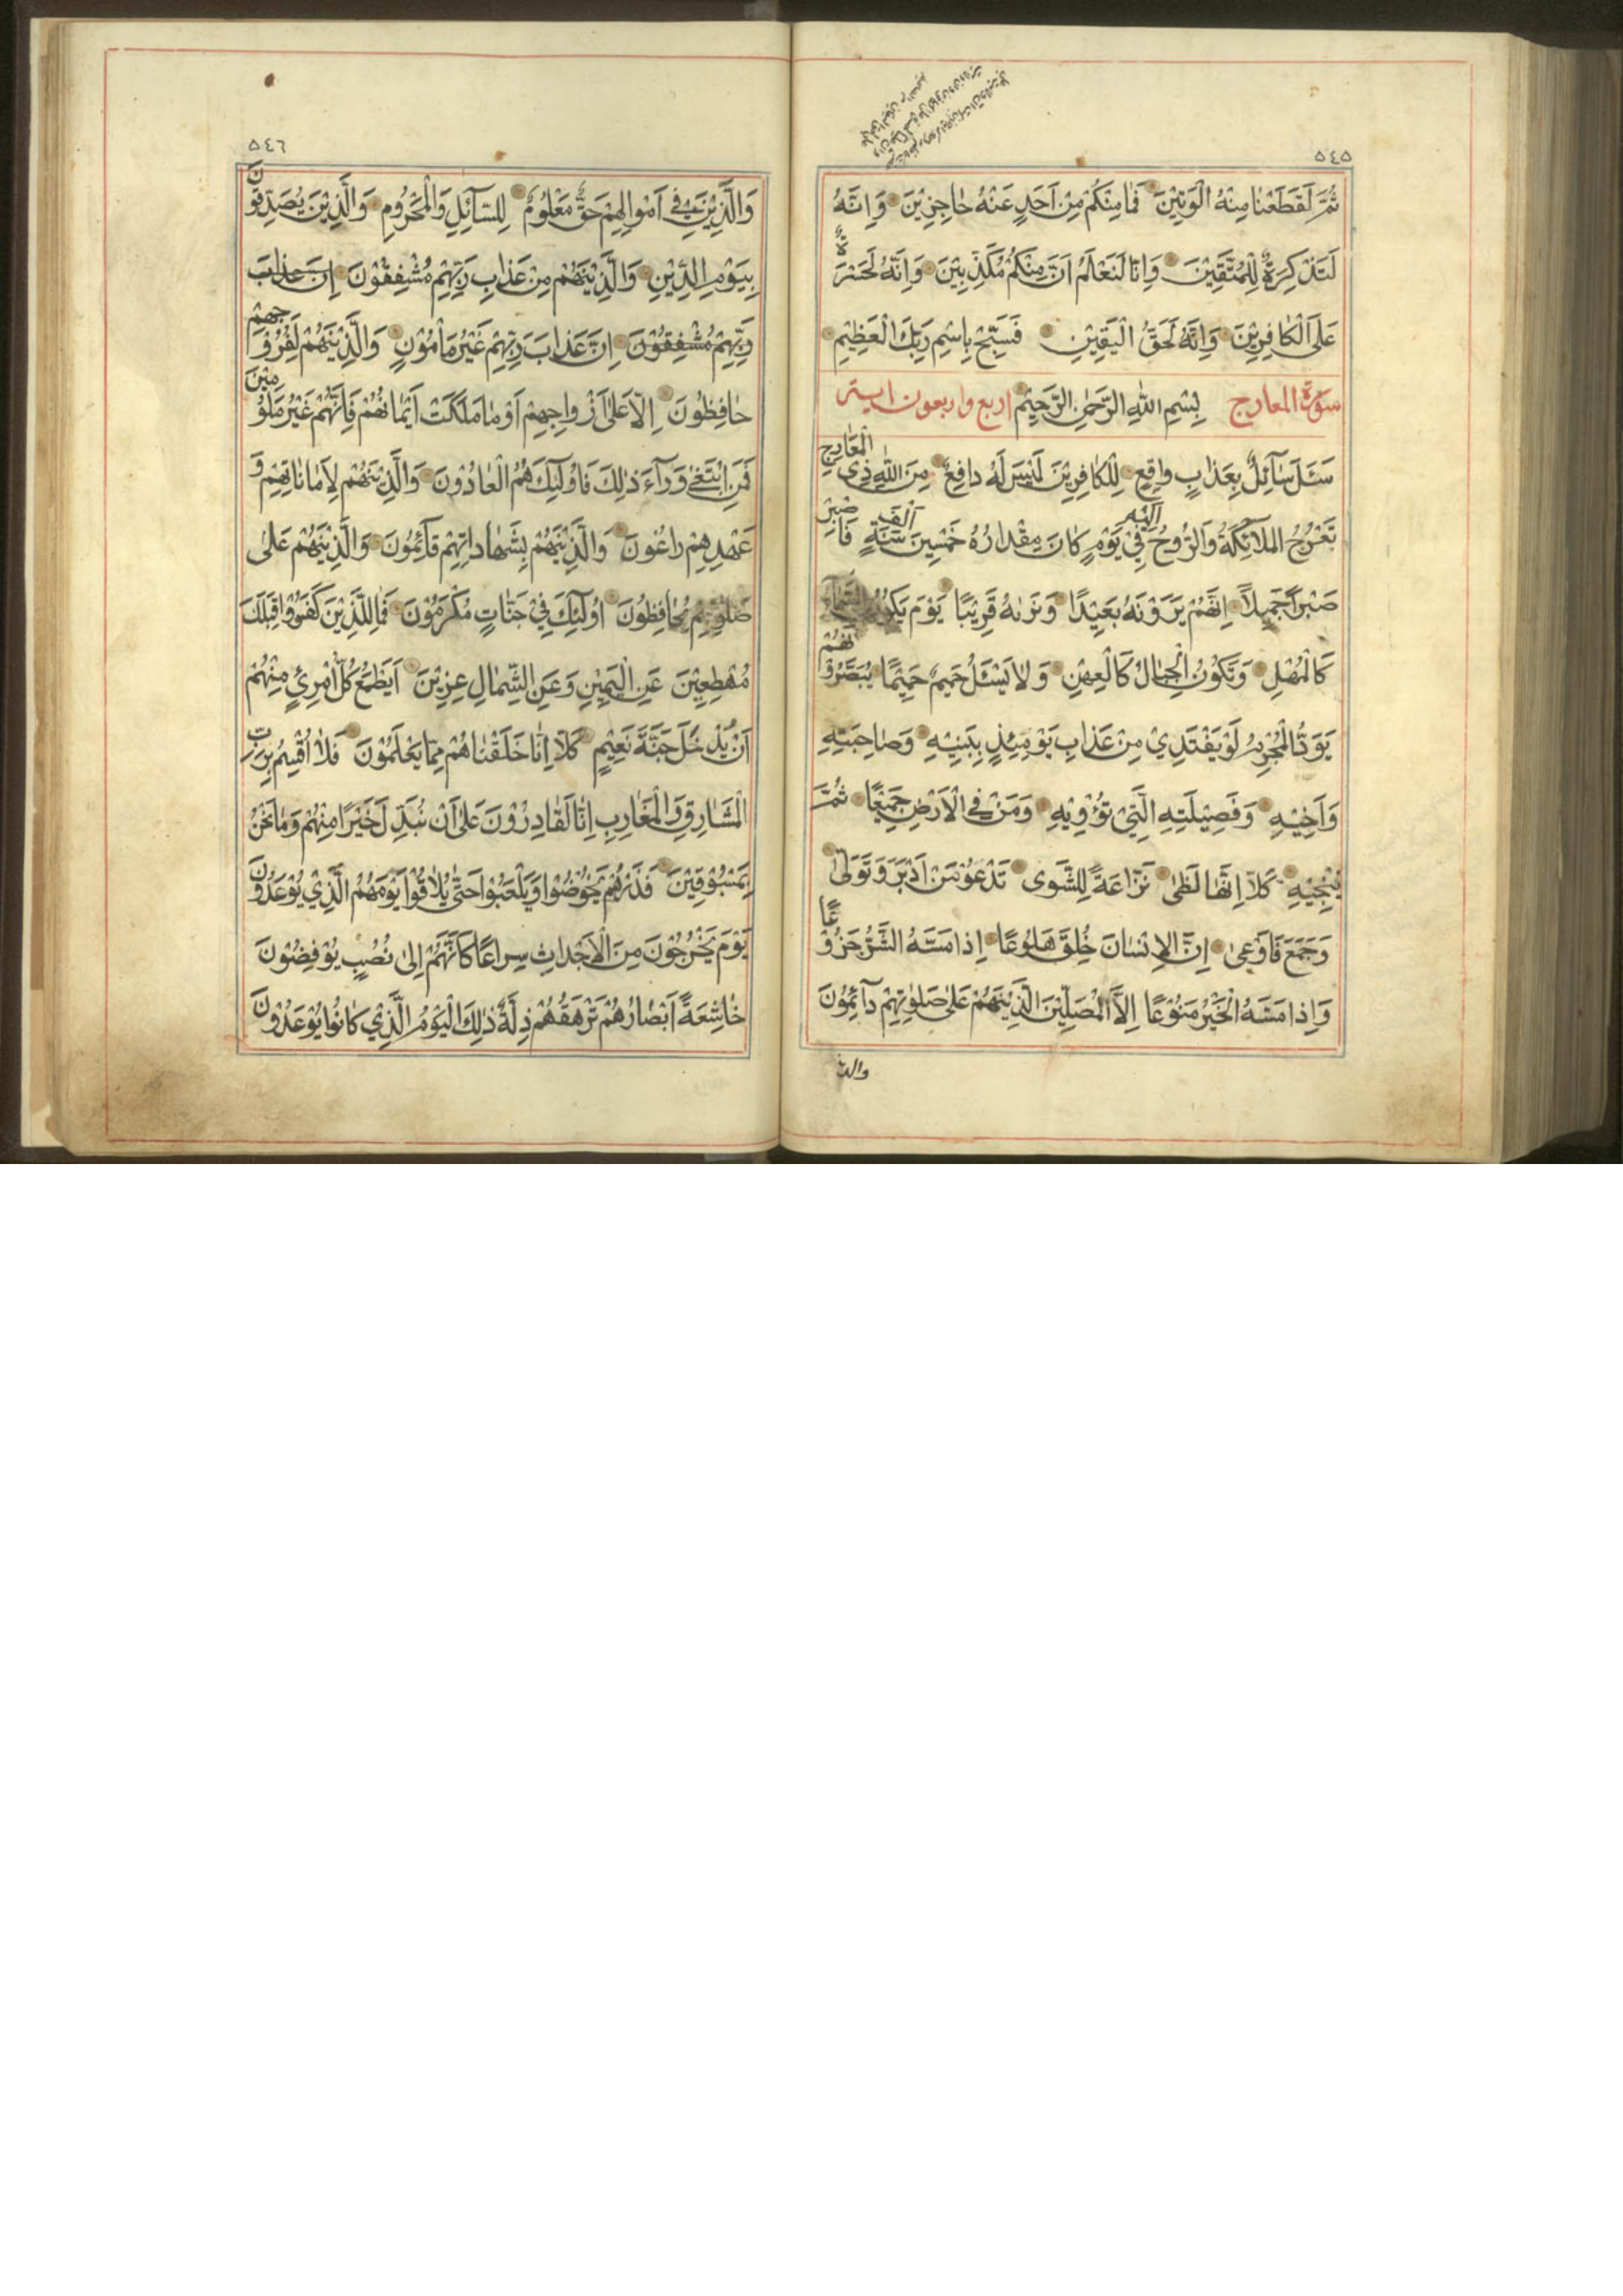 ٥٤٥
ثُمَّ لَقَطَعْنَا مِنْهُ الْوَتِيْنَ فَمَا مِنْكُمْ مِنْ اَحَدٍ عَنْهُ حَاجِزِيْنَ وَاِنَّهُ
لَتَذْكِرَةٌ لِلْمُتَّقِيْنَ وَاِنَّا لَنَعْلَمُ اَنَّ مِنْكُمْ مُكَذِّبِيْنَ وَاِنَّهُ لَحَسْرَةٌ
عَلَى الْكَافِرِيْنَ وَاِنَّهُ لَحَقُّ الْيَقِيْنِ فَسَبِّحْ بِاسْمِ رَبِّكَ الْعَظِيْمِ
سورة المعارج بِسْمِ اللهِ الرَّحْمٰنِ الرَّحِيْمِ اربع واربعون اية
سَئَلَ سَآئِلٌ بِعَذَابٍ وَاقِعٍ لِلْكَافِرِيْنَ لَيْسَ لَهُ دَافِعٌ مِنَ اللهِ ذِي الْمَعَارِجِ
تَعْرُجُ الْمَلَآئِكَةُ وَالرُّوحُ اِلَيْهِ فِيْ يَوْمٍ كَانَ مِقْدَارُهُ خَمْسِيْنَ اَلْفَ سَنَةٍ فَاصْبِرْ
صَبْرًا جَمِيْلًا اِنَّهُمْ يَرَوْنَهُ بَعِيْدًا وَنَرٰىهُ قَرِيْبًا يَوْمَ تَكُوْنُ السَّمَآءُ
كَالْمُهْلِ وَتَكُوْنُ الْجِبَالُ كَالْعِهْنِ وَلَا يَسْئَلُ حَمِيْمٌ حَمِيْمًا يُبَصَّرُوْنَهُمْ
يَوَدُّ الْمُجْرِمُ لَوْ يَفْتَدِيْ مِنْ عَذَابِ يَوْمِئِذٍ بِبَنِيْهِ وَصَاحِبَتِهِ
وَاَخِيْهِ وَفَصِيْلَتِهِ الَّتِيْ تُؤْوِيْهِ وَمَنْ فِي الْاَرْضِ جَمِيْعًا ثُمَّ
يُنْجِيْهِ كَلَّا اِنَّهَا لَظٰى نَزَّاعَةً لِلشَّوٰى تَدْعُوْ مَنْ اَدْبَرَ وَتَوَلّٰى
وَجَمَعَ فَاَوْعٰى اِنَّ الْاِنْسَانَ خُلِقَ هَلُوعًا اِذَا مَسَّهُ الشَّرُّ جَزُوْعًا
وَاِذَا مَسَّهُ الْخَيْرُ مَنُوْعًا اِلَّا الْمُصَلِّيْنَ الَّذِيْنَ هُمْ عَلٰى صَلٰوتِهِمْ دَآئِمُوْنَ
والذين
٥٤٦
وَالَّذِيْنَ فِي اَمْوَالِهِمْ حَقٌّ مَعْلُوْمٌ لِلسَّآئِلِ وَالْمَحْرُوْمِ وَالَّذِيْنَ يُصَدِّقُوْنَ
بِيَوْمِ الدِّيْنِ وَالَّذِيْنَ هُمْ مِنْ عَذَابِ رَبِّهِمْ مُشْفِقُوْنَ اِنَّ عَذَابَ
رَبِّهِمْ مُشْفِقُوْنَ اِنَّ عَذَابَ رَبِّهِمْ غَيْرُ مَاْمُوْنٍ وَالَّذِيْنَ هُمْ لِفُرُوْجِهِمْ
حَافِظُوْنَ اِلَّا عَلٰى اَزْوَاجِهِمْ اَوْ مَا مَلَكَتْ اَيْمَانُهُمْ فَاِنَّهُمْ غَيْرُ مَلُوْمِيْنَ
فَمَنِ ابْتَغٰى وَرَآءَ ذٰلِكَ فَاُولٰئِكَ هُمُ الْعَادُوْنَ وَالَّذِيْنَ هُمْ لِاَمَانَاتِهِمْ وَ
عَهْدِهِمْ رَاعُوْنَ وَالَّذِيْنَ هُمْ بِشَهَادَاتِهِمْ قَآئِمُوْنَ وَالَّذِيْنَ هُمْ عَلٰى
صَلٰوتِهِمْ يُحَافِظُوْنَ اُولٰئِكَ فِيْ جَنَّاتٍ مُكْرَمُوْنَ فَمَالِ الَّذِيْنَ كَفَرُوْا قِبَلَكَ
مُهْطِعِيْنَ عَنِ الْيَمِيْنِ وَعَنِ الشِّمَالِ عِزِيْنَ اَيَطْمَعُ كُلُّ امْرِئٍ مِنْهُمْ
اَنْ يُدْخَلَ جَنَّةَ نَعِيْمٍ كَلَّا اِنَّا خَلَقْنَاهُمْ مِمَّا يَعْلَمُوْنَ فَلَا اُقْسِمُ بِرَبِّ
الْمَشَارِقِ وَالْمَغَارِبِ اِنَّا لَقَادِرُوْنَ عَلٰى اَنْ نُبَدِّلَ خَيْرًا مِنْهُمْ وَمَا نَحْنُ
بِمَسْبُوْقِيْنَ فَذَرْهُمْ يَخُوْضُوْا وَيَلْعَبُوْا حَتّٰى يُلَاقُوْا يَوْمَهُمُ الَّذِيْ يُوْعَدُوْنَ
يَوْمَ يَخْرُجُوْنَ مِنَ الْاَجْدَاثِ سِرَاعًا كَاَنَّهُمْ اِلٰى نُصُبٍ يُوْفِضُوْنَ
خَاشِعَةً اَبْصَارُهُمْ تَرْهَقُهُمْ ذِلَّةٌ ذٰلِكَ الْيَوْمُ الَّذِيْ كَانُوْا يُوْعَدُوْنَ